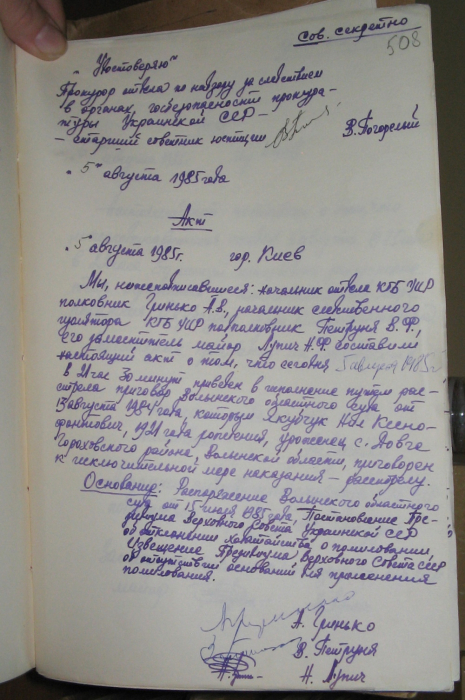 Сов. секретно
508
"Удостоверяю"
Прокурор отдела по надзору за следствием
в органах госбезопасности прокура-
туры Украинской ССР -
- старший советник юстиции В. Погорелый
"5" августа 1985 года
Акт
"5 августа 1985г. гор. Киев
Мы, нижеподписавшиеся: начальник отдела КГБ УССР
полковник Гринько А.В., начальник следственного
изолятора КГБ УССР подполковник Петруня В.Ф.,
его заместитель майор Лупич Н.Ф. составили
настоящий акт о том, что сегодня 5 августа 1985г
в 21 час 30 минут приведен в исполнение путем рас-
стрела приговор Волынского областного суда от
13 августа 1984 года, которым Ксено-
фонтович, 1921 года рождения, уроженец с.
Гороховского района, Волынской области, приговорен
к исключительной мере наказания - расстрелу.
Основание: Распоряжение Волынского областного
суда от 15 июля 1985 года, Постановление Пре-
зидиума Верховного Совета Украинской ССР
об отклонении ходатайства о помиловании,
Извещение Президиума Верховного Совета СССР
об отсутствии оснований для применения
помилования.
А. Гринько
В. Петруня
Н. Лупич